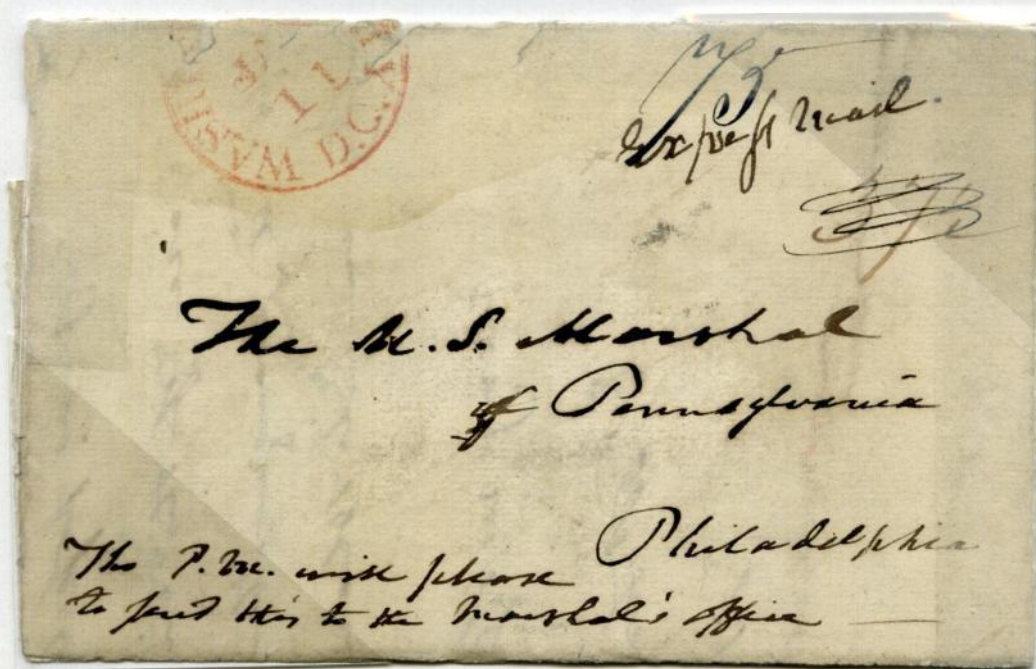 WASH D.C.
11
75
Express Mail.
37½
The U.S. Marshal
of Pennsylvania
Philadelphia
The P.M. will please
to send this to the Marshal's office